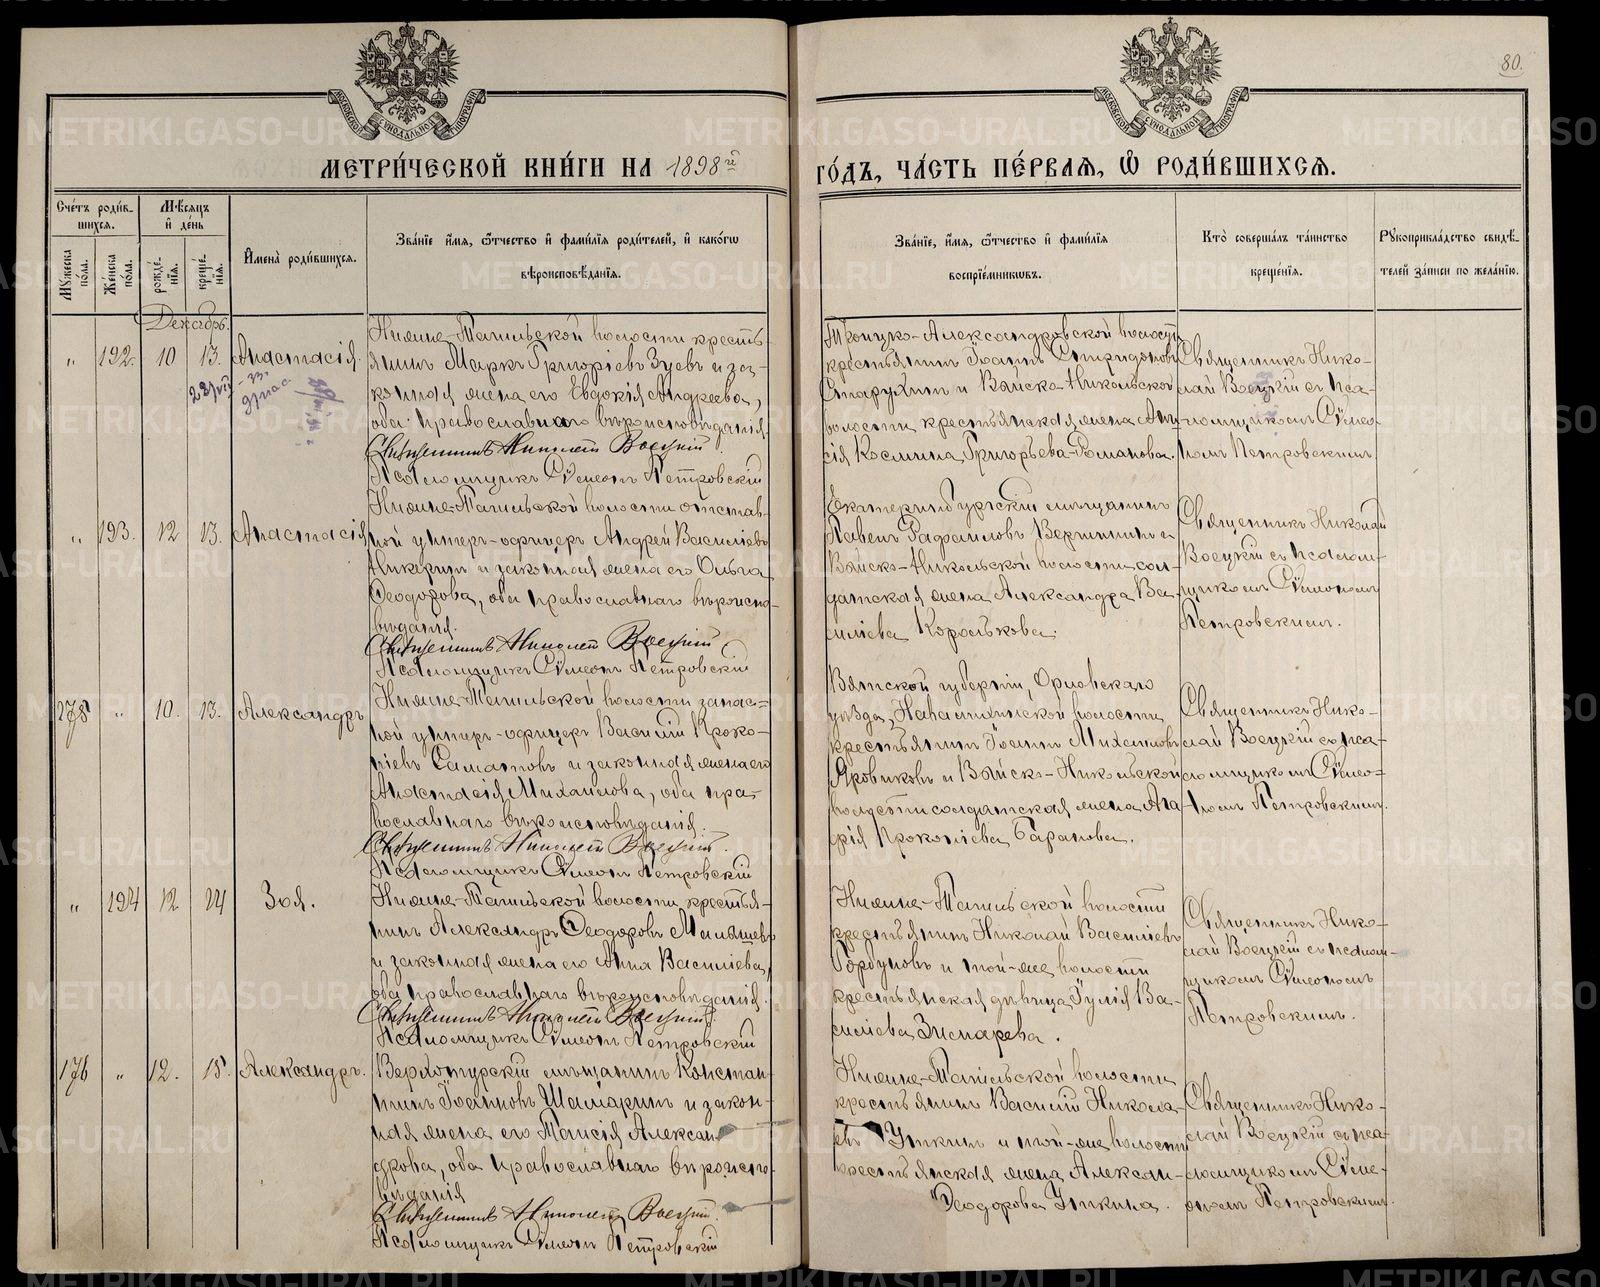 80.
МЕТРИ́ЧЕСКОЙ КНИ́ГИ НА 1898й
ГО́ДЪ, ЧА́СТЬ ПЕ́РВАЯ, Ѽ РОДИ́ВШИХСЯ.
Сче́тъ роди́в-
шихся.
Мужеска по́ла.
Же́нска по́ла.
Мѣ́сяцъ и де́нь
рожде́-
нія.
креще́-
нія.
Имена̀ роди́вшихся.
Зва́ніе имя, ѻтчество и фами́лія роди́телей, и како́гѡ
вѣроисповѣ́данія.
Зва́ніе, имя, ѻтчество и фами́лія
воспріе́мниковъ.
Кто̀ соверша́лъ та́инство
креще́нія.
Рукоприкла́дство свидѣ́-
телей за́писи по жела́нію.
Декабрь.
„ 192. 10 13. Анастасія.
Нижне-Тагильской волости кресть-
янинъ Маркъ Григоріевъ Зуевъ и за-
конная жена его Евдокія Андреева,
оба православнаго вѣроисповѣданія.
Священникъ Николай Воецкій.
Псаломщикъ Сѵмеонъ Петровскій
Троицко-Александровской волости
крестьянинъ Іоаннъ Спиридоновъ
Старухинъ и Войско-Никольской
волости крестьянская жена
Космина Григорьева-Романова.
Священникъ Нико-
лай Воецкій съ пса-
ломщикомъ Сѵмео-
номъ Петровскимъ.
„ 193. 12 13. Анастасія
Нижне-Тагильской волости отстав-
ной унтеръ-офицеръ Андрей Василіевъ
и законная жена его Ольга
Ѳеодорова, оба православнаго вѣроиспо-
вѣданія.
Священникъ Николай Воецкій
Псаломщикъ Сѵмеонъ Петровскій
Екатеринбургскій мѣщанинъ
Павелъ Рафаиловъ Вершининъ и
Войско-Никольской волости сол-
датская жена Александра Ва-
силіева Королькова.
Священникъ Николай
Воецкій съ псалом-
щикомъ Сѵмеономъ
Петровскимъ.
175 „ 10. 13. Александръ
Нижне-Тагильской волости запас-
ной унтеръ-офицеръ Василій Проко-
піевъ и законная жена его
Анастасія Михаилова, оба пра-
вославнаго вѣроисповѣданія.
Священникъ Николай Воецкій.
Псаломщикъ Сѵмеонъ Петровскій
Вятской губерніи, Орловскаго
уѣзда, волости
крестьянинъ Іоаннъ Михаиловъ
Яровиковъ и Войско-Никольской
волости солдатская жена Ага-
фія Прокопіева Баранова.
Священникъ Нико-
лай Воецкій съ пса-
ломщикомъ Сѵмео-
номъ Петровскимъ.
„ 194 12 14 Зоя.
Нижне-Тагильской волости, крестья-
нинъ Александръ Ѳеодоровъ Малышевъ
и законная жена его Анна Василіева,
оба православнаго вѣроисповѣданія.
Священникъ Николай Воецкій.
Псаломщикъ Сѵмеонъ Петровскій
Нижне-Тагильской волости
крестьянинъ Николай Василіевъ
Горбуновъ и той-же волости
крестьянская дѣвица Іулія Ва-
силіева Знемарева.
Священникъ Нико-
лай Воецкій съ псалом-
щикомъ Сѵмеономъ
Петровскимъ.
176 „ 12. 15. Александръ.
Верхотурскій мѣщанинъ Констан-
тинъ Іоанновъ Шамаринъ и закон-
ная жена его Таисія Алексан-
дрова, оба православнаго вѣроиспо-
вѣданія
Священникъ Николай Воецкій.
Псаломщикъ Сѵмеонъ Петровскій
Нижне-Тагильской волости
крестьянинъ Василій Никола-
евъ Уткинъ и той-же волости
крестьянская жена Алексан-
Ѳеодорова Уткина.
Священникъ Нико-
лай Воецкій съ пса-
ломщикомъ Сѵме-
ономъ Петровскимъ.
METRIKI.GASO-URAL.RU